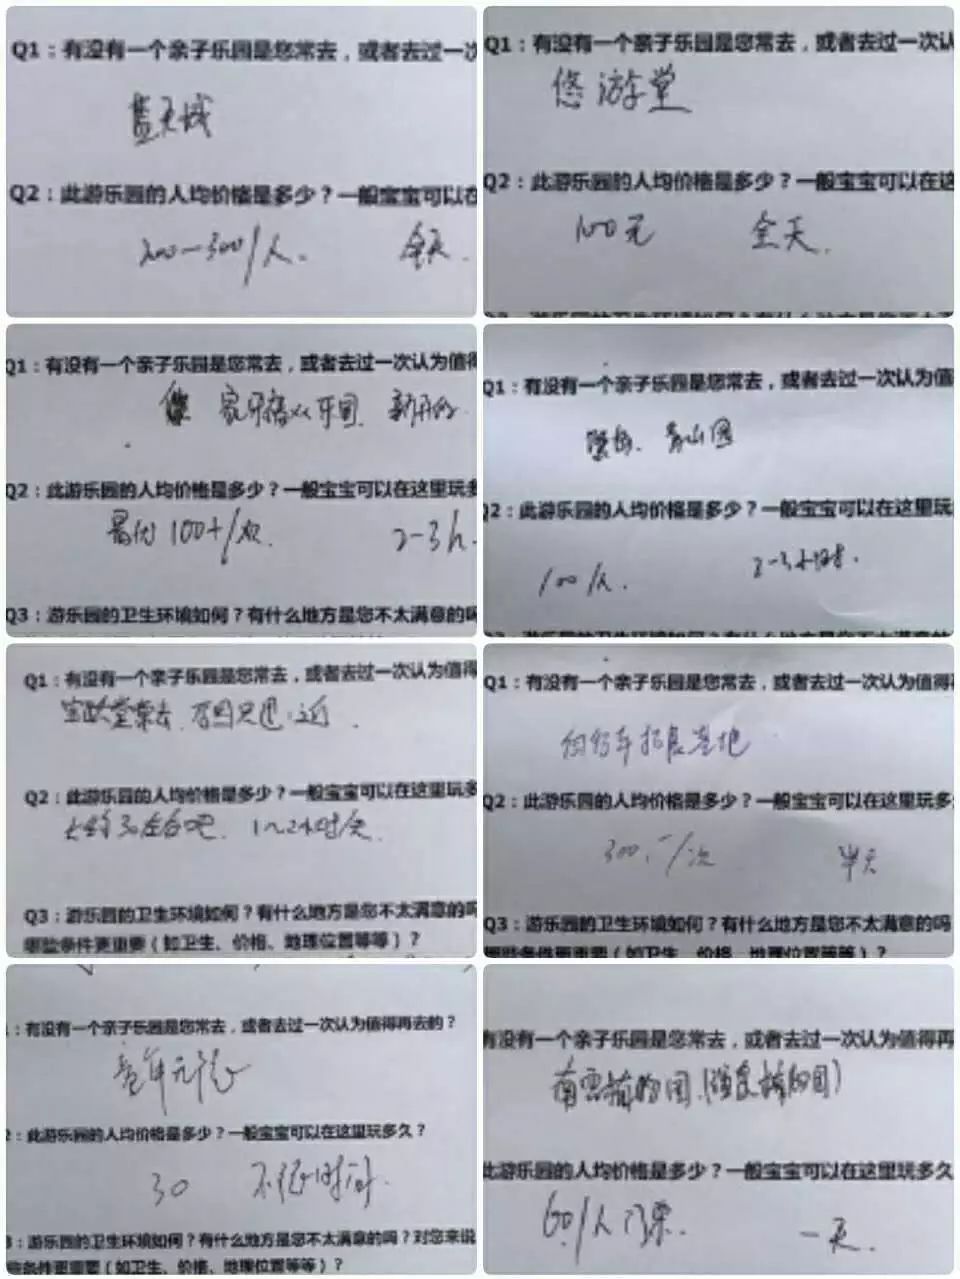 Q1：有没有一个亲子乐园是您常去，或者去过一次
蓝天城
Q2：此游乐园的人均价格是多少？一般宝宝可以在
200—300/人. 全天.
Q1：有没有一个亲子乐园是您常去，或者去过一次认
悠游堂
Q2：此游乐园的人均价格是多少？一般宝宝可以在这
100元 全天.
Q1：有没有一个亲子乐园是您常去，或者去过一次认为值得
新开的.
Q2：此游乐园的人均价格是多少？一般宝宝可以在这里玩多
100+/次. 2-3h.
Q3：游乐园的卫生环境如何？有什么地方是您不太满意的吗
Q1：有没有一个亲子乐园是您常去，或者去过一次认为值
Q2：此游乐园的人均价格是多少？一般宝宝可以在这里玩
100/人. 2-3小时.
Q1：有没有一个亲子乐园是您常去，或者去过一次认为值得
常去
Q2：此游乐园的人均价格是多少？一般宝宝可以在这里玩多
大约30左右吧. 1~2小时
Q3：游乐园的卫生环境如何？有什么地方是您不太满意的吗
哪些条件更重要（如卫生、价格、地理位置等等）？
Q1：有没有一个亲子乐园是您常去，或者去过一次认为值得再
基地
Q2：此游乐园的人均价格是多少？一般宝宝可以在这里玩多
300.-/次 半天
Q3：游乐园的卫生环境如何？有什么地方是您不太满意的吗
哪些条件更重要（如卫生、价格、地理位置等等）？
：有没有一个亲子乐园是您常去，或者去过一次认为值得再去的？
童年元役
：此游乐园的人均价格是多少？一般宝宝可以在这里玩多久？
30 不限时间.
：游乐园的卫生环境如何？有什么地方是您不太满意的吗？对您来说
些条件更重要（如卫生、价格、地理位置等等）？
有没有一个亲子乐园是您常去，或者去过一次认为值得再
植物园
此游乐园的人均价格是多少？一般宝宝可以在这里玩多久
60/人门票. 一天.